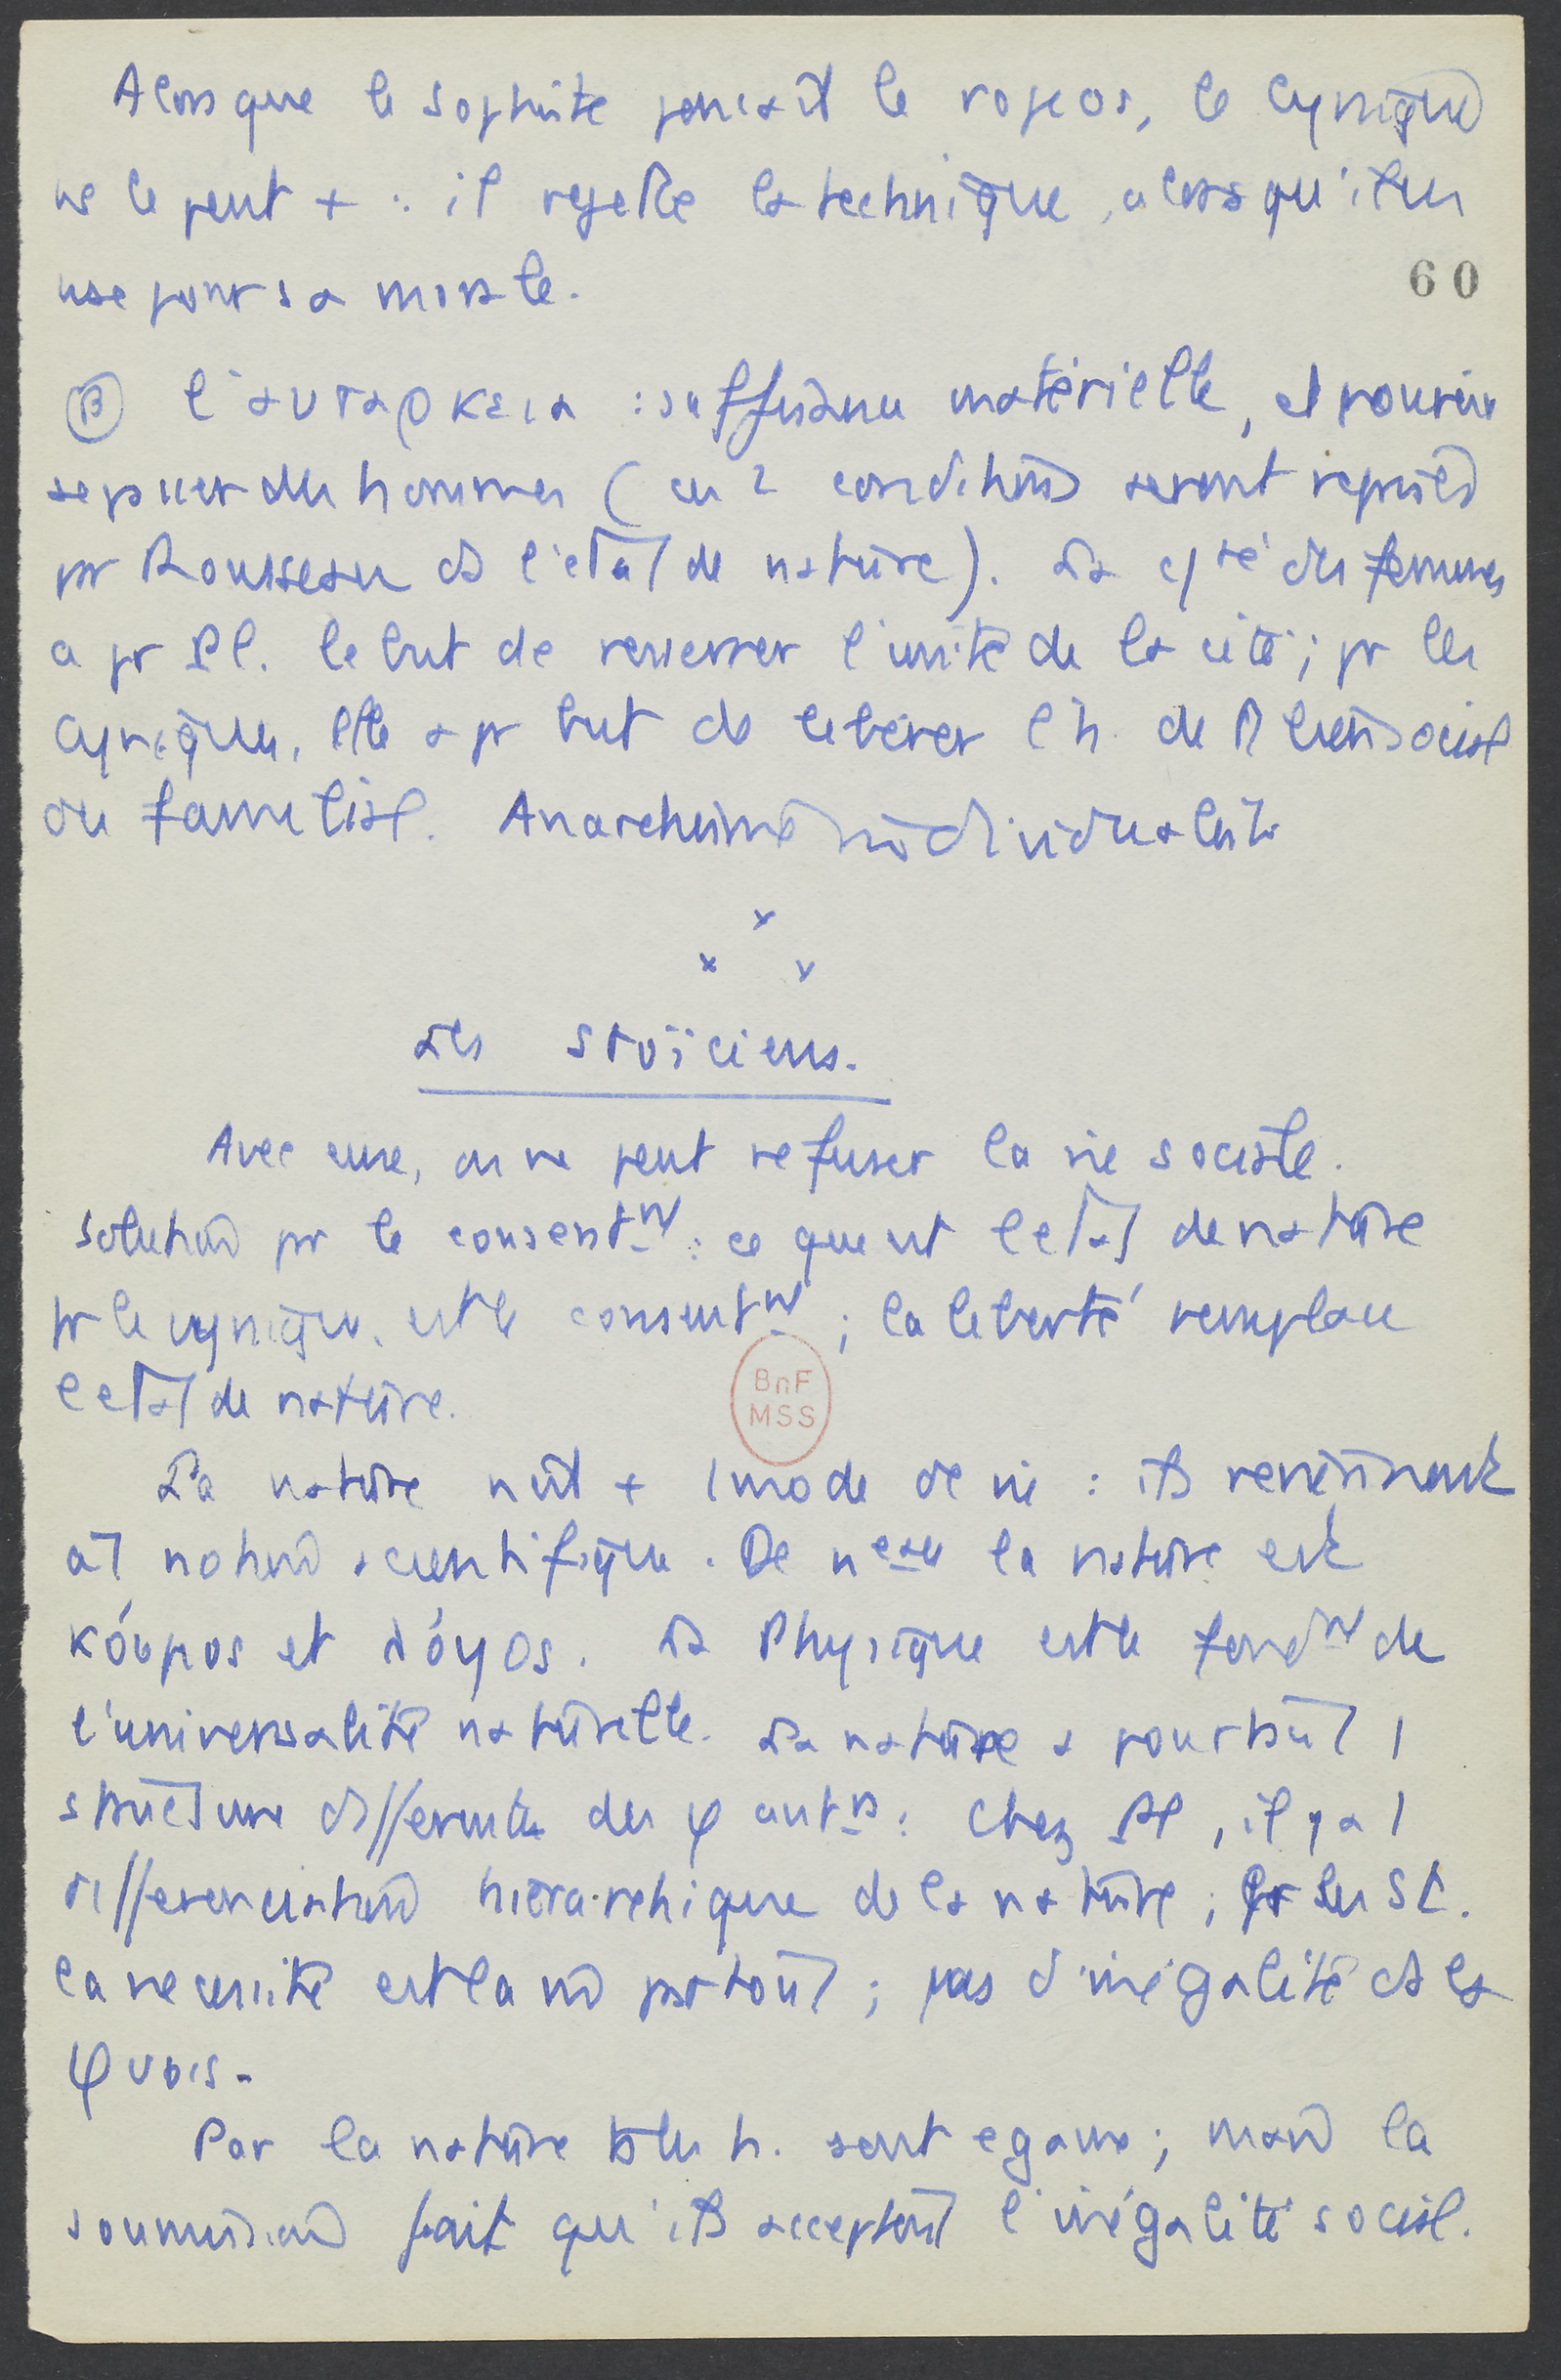 Alors que le sophiste pensait le νομος, le cynique
ne le peut + : il rejette la technique, alors qu'il en
use pour sa morale.
60
β l'αυταρκεια : suffisance matérielle, et pouvoir
se passer des hommes (ces 2 conditions seront reprises
pr Rousseau ds l'état de nature). La cté des femmes
a pr Pl. le but de resserrer l'unité de la cité ; pr les
cyniques, elle a pr but de libérer l'h. de tt lien social
ou familial. Anarchisme individualiste
x
x x
Les Stoïciens.
Avec eux, on ne peut refuser la vie sociale.
Solution pr le consentmt : ce que est l'état de nature
pr le cynique, est le consentmt ; la liberté remplace
l'état de nature.
BnF
MSS
La nature n'est + 1 mode de vie : ils reviennent
à 1 notion scientifique. De neau la nature est
κόσμος et λόγος. La Physique est le fondmt de
l'universalité naturelle. La nature a pourtant 1
structure différente des φ antrs : chez Pl, il y a 1
différenciation hiérarchique de la nature ; pr les St.
la nécessité est la m̂ partout ; pas d'inégalité ds la
φυσις.
Par la nature ts les h. sont égaux ; mais la
soumission fait qu'ils acceptent l'inégalité social.